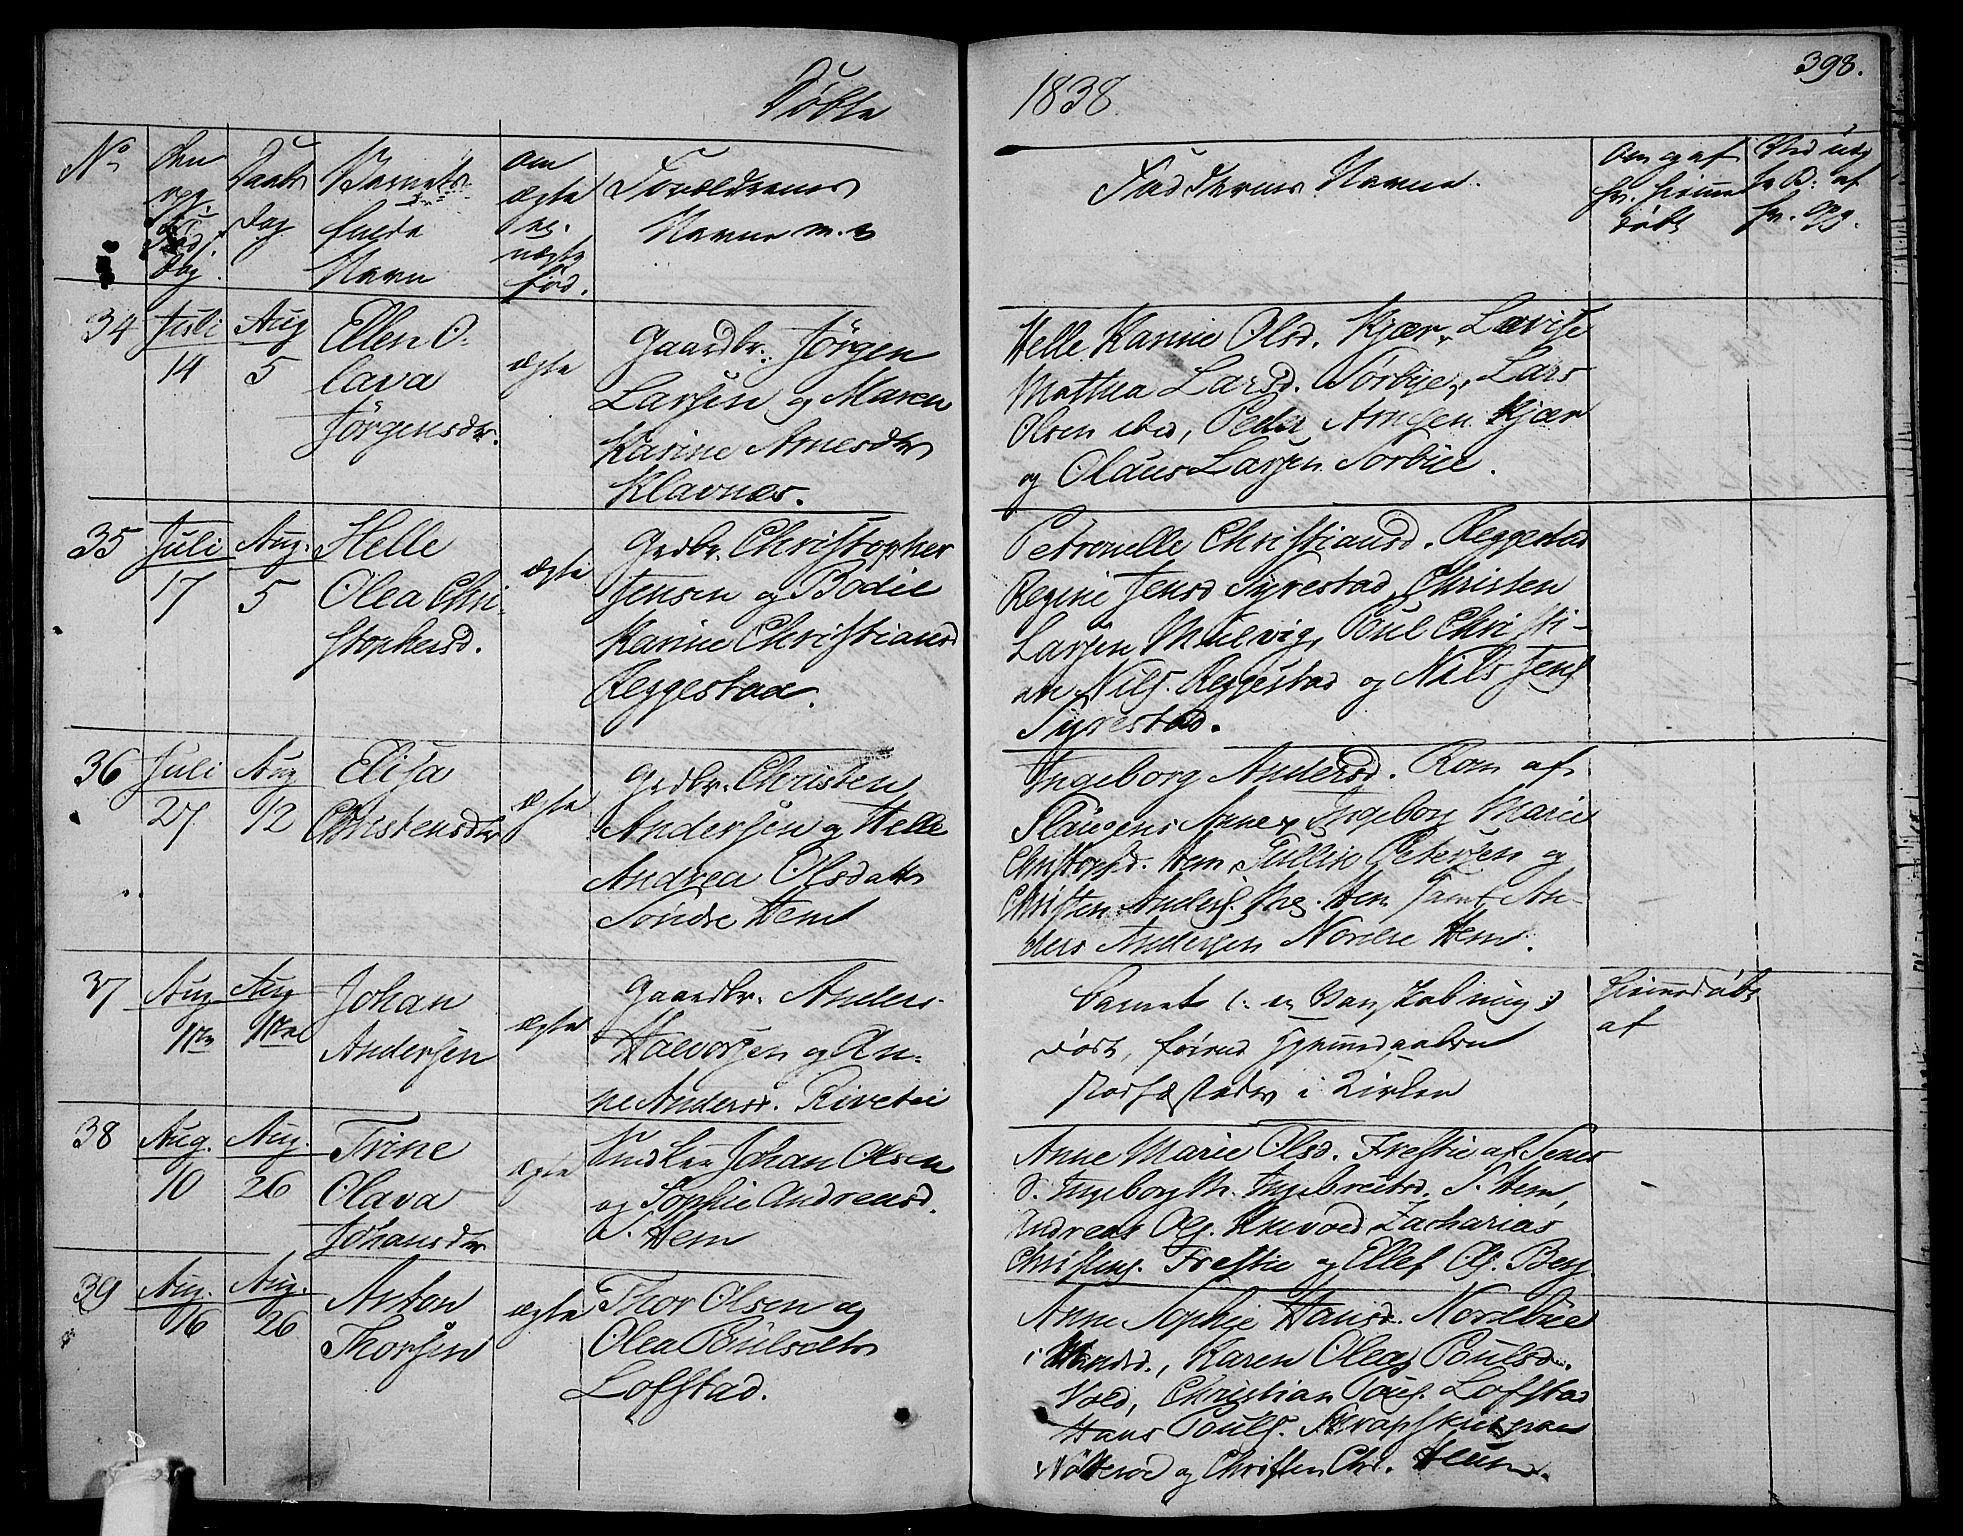 398.
Döbte 1838
No
Daabs
Dag
Barnets
fulde
Navn
om
ægte
uægte
fød.
Forældrenes
Navne m. v
Faddernes Navne.
34 Juli 14 Aug 5
Ellen O-
lava
Jörgensdr.
ægte
Gaardbr. Jörgen
Larsen og Maren
Karine Arnesdr
Klavnæs.
Helle Karine Olsd. Kjær, Lovise
Mathea Larsd. Sörbye, Lars
Olsen ibid, Peder Arnsen Kjær
og Olaus Larsen Sörbÿe.
35 Juli 17 Aug. 5
Helle
Olea Chri
stophersd.
ægte
Grdbr. Christopher
Jensen og Bodil
Karine Christiansd
Reggestad.
Petronelle Christiansd. Reggestad
Regine Jensd Syrestad, Christen
Larsen Mulvig, Poul Christi-
an Nils. Reggestad og Nils Jens
Syrestad.
36 Juli 27 Aug 12
Elisa
Christensdr
ægte
Grdbr. Christen
Andersen og Helle
Andrea Olsdatter
Söndre Hem
Ingeborg Andersd. Rom af
Slaugens Annex, Ingeborg Marie
Christophsd. Hem, Gullik Petersen og
Christen Anders. Hem samt An-
ders Andersen Nordre Hem.
37 Aug 17 Aug 17
Johan
Andersen
ægte
Gaardbr. Anders
Halvorsen og An-
ne Andersd. Rivetei
Barnet
döde, förend Hjemmedaaben
stadfæstedes i Kirken
Hjemmedöbt
af
38 Aug. 10 Aug. 26
Trine
Olava
Johansdr
ægte
Johan Olsen
og Sophie Andreasd.
S. Hem
Anne Marie Olsd. Frestie af
Ingeborg M. Ingebretsd. S. Hem,
Andreas Ols. Zacharias
Christens. Frestie og Ellef Ols. Berg.
39 Aug. 16 Aug. 26
Anton
Thorsen
ægte
Thor Olsen og
Olea Poulsdtr
Lofstad.
Anne Sophie Hansd. Nordbÿe
i Karen Olea Poulsd.
Vold, Christian Pouls. Lofstad
Hans Pouls.
Nötteröe og Christen Chr.